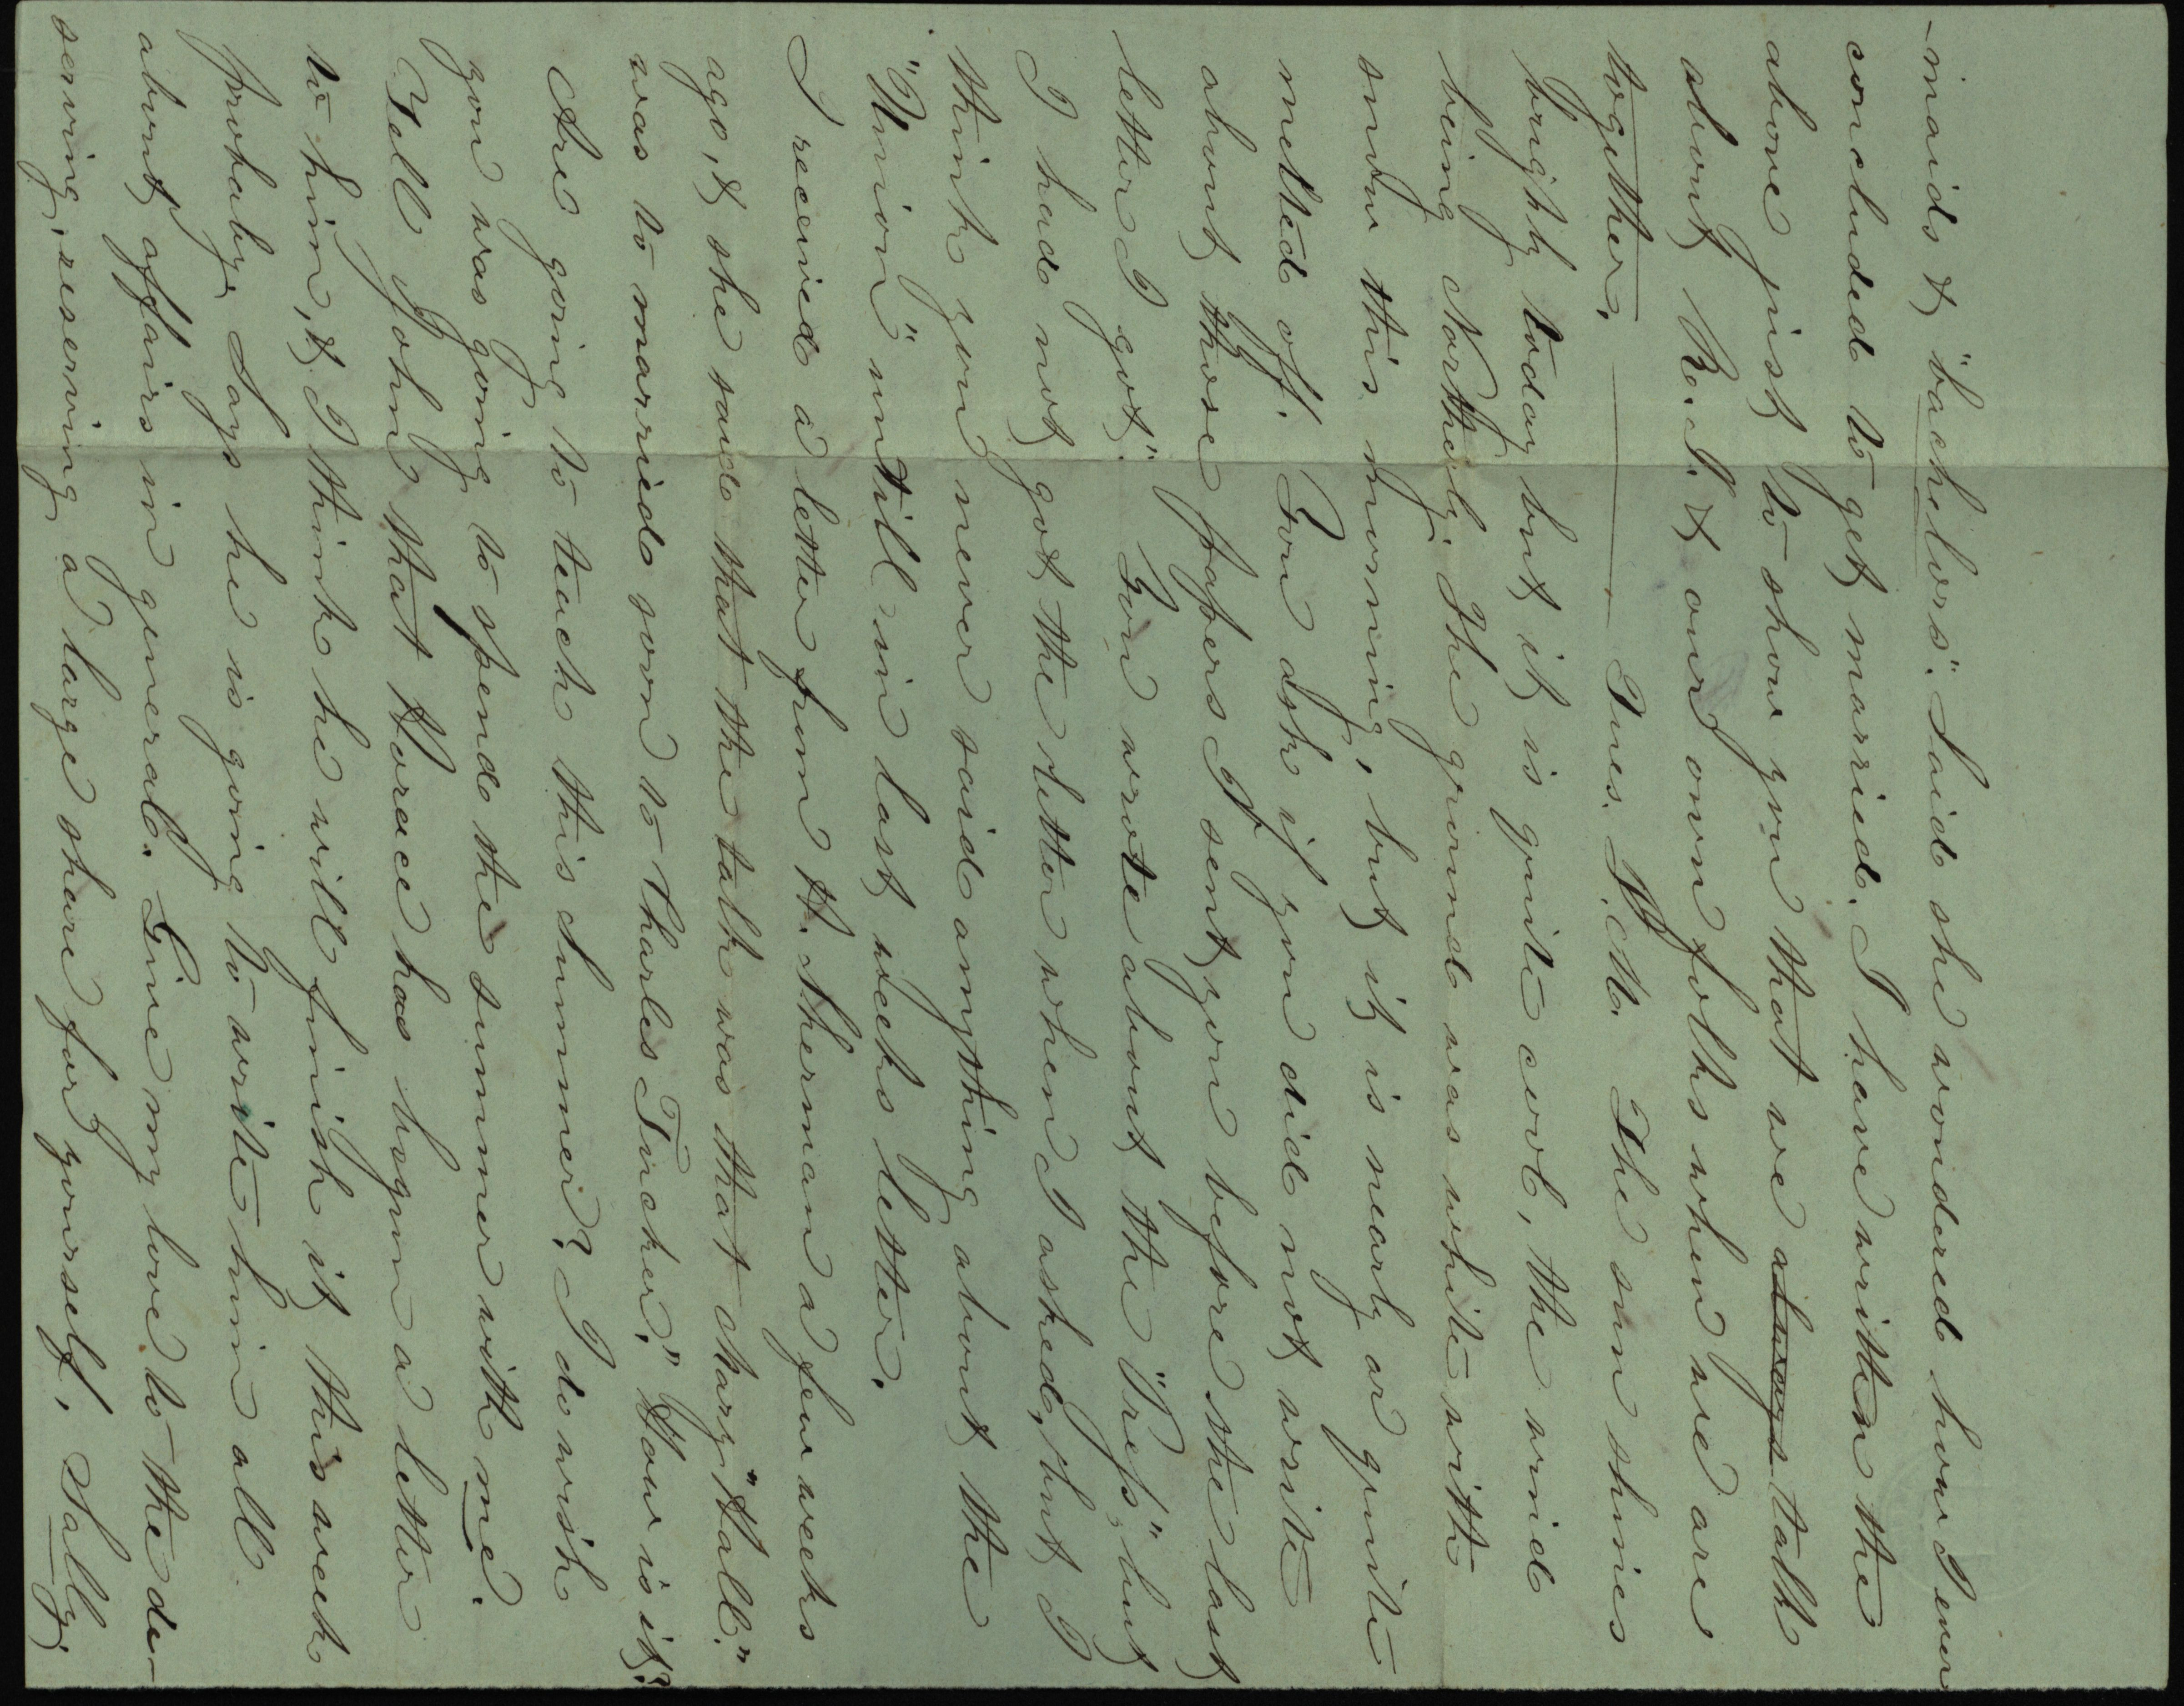 -maids & "bachelors". Said she wondered how I ever
concluded to get married. I have written the
above just to show you that we always talk
about R. I. & our own folks when we are
together. ——— Tues. P.M. The sun shines
brightly today but it is quite cool, the wind
being Northerly. The ground was white with
snow this morning, but it is nearly or quite
melted off. You ask if you did not write
about those papers I sent you before the last
letter I got". You wrote about the "Press" but
I had not got the letter when I asked, but I
think you never said anything about the
"Union" untill in last weeks letter.
I received a letter from H. Sherman a few weeks
ago, & she said that the talk was that Mary "Hall."
was to married soon to Charles Tucker." How is it?
Are going to teach this summer? I do wish
you was going to spend the summer with me.
Tell John that Horace has begun a letter
to him, & I think he will finish it this week
probably. Says he is going to write him all
about affairs in general. Give my love to the de-
serving, reserving a large share for yourself. Sally.